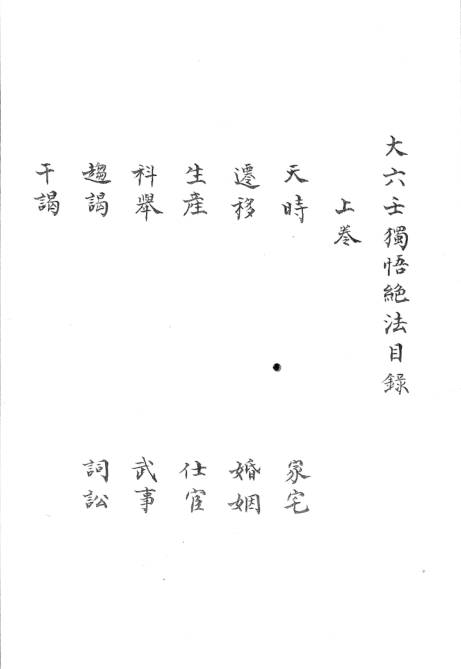 大六壬獨悟絕法目錄
上卷
天時 家宅
遷移 婚姻
生產 仕宦
科舉 武事
趨謁 詞訟
干謁